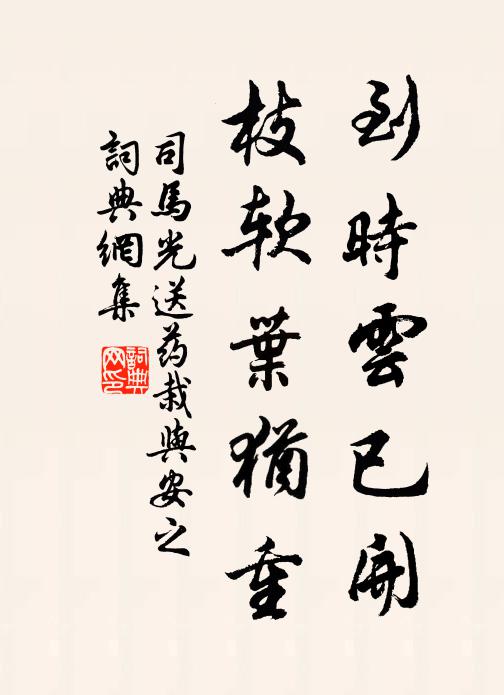 到時雲已開
枝軟葉猶重
司馬光送药栽與安之
詞典網集
詞典网印